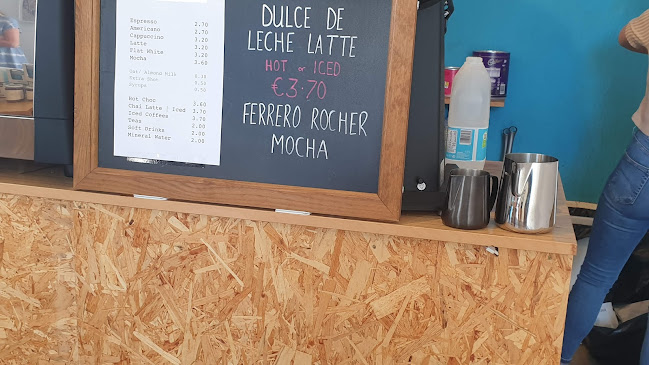 Espresso 2.70
Americano 2.70
Cappuccino 3.20
Latte 3.20
Flat White 3.20
Mocha 3.60
Oat/ Almond Milk
Extra Shot
Hot Choc 3.60
Chai Latte / Iced 3.70
Iced Coffees 3.70
Teas 2.00
Soft Drinks 2.00
Mineral Water 2.00
DULCE DE
LECHE LATTE
HOT or ICED
€3.70
FERRERO ROCHER
MOCHA